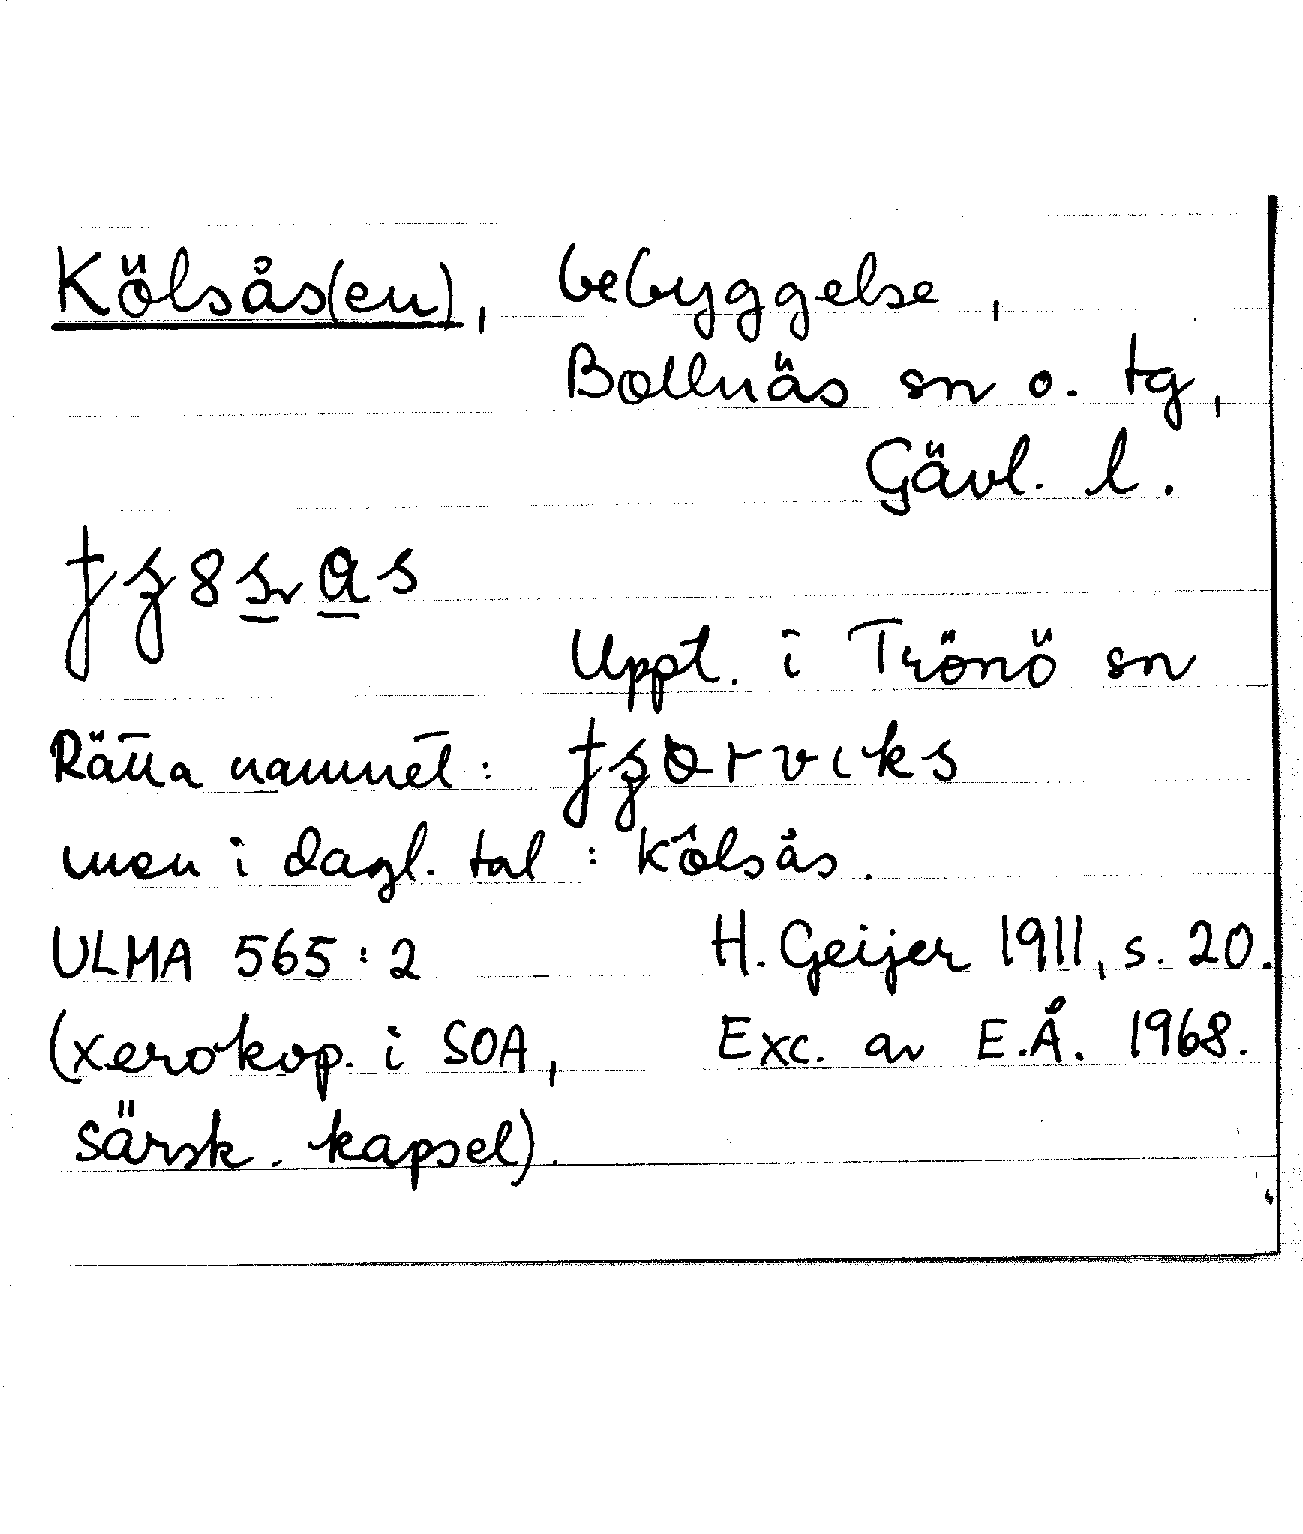 Kölsås(en), bebyggelse,
Bollnäs sn o. tg,
Gävl. l.
Uppt. i Trönö sn
Rätta namnet:
men i dagl. tal : Kölsås.
ULMA 565:2 H. Geijer 1911, s. 20.
(xerokop. i SOA, Exc. av E.Å. 1968.
särsk. kapsel).